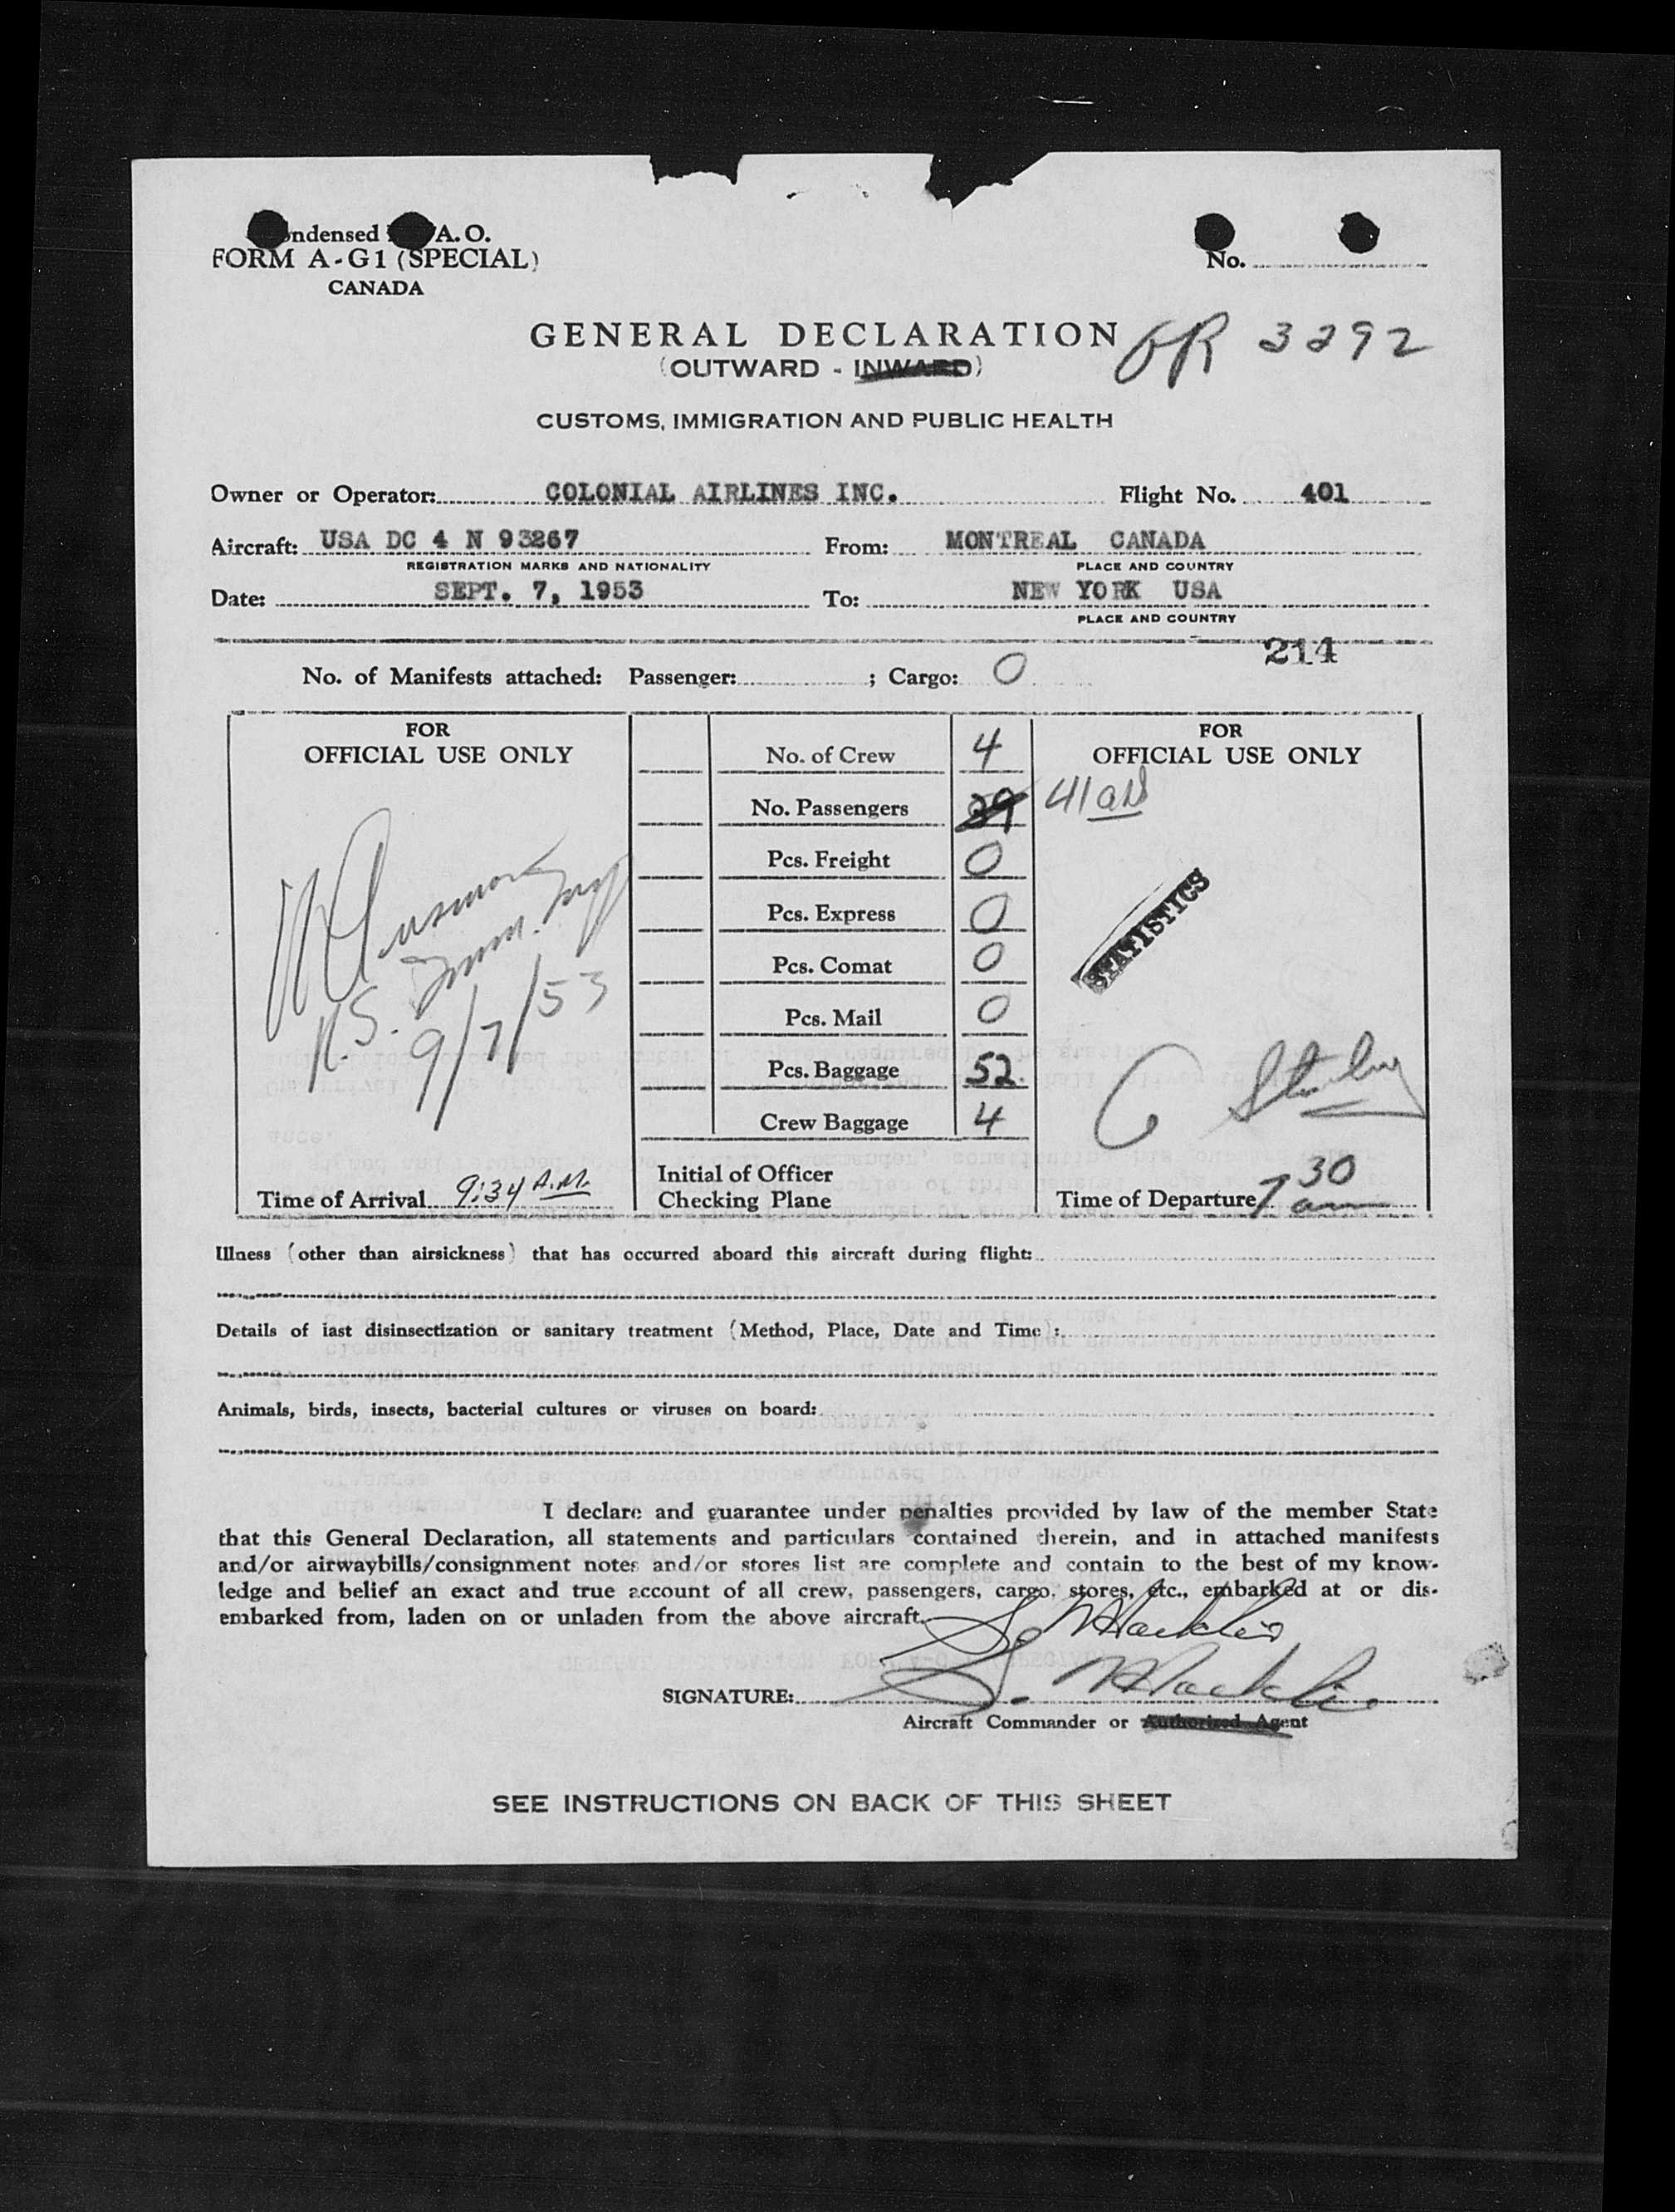 ndensed A. O.
FORM A-G1 (SPECIAL)
CANADA
No.
GENERAL DECLARATION
3292
(OUTWARD - INWARD)
CUSTOMS, IMMIGRATION AND PUBLIC HEALTH
Owner or Operator: COLONIAL AIRLINES INC. Flight No. 401
Aircraft: USA DC 4 N 93267 From: MONTREAL CANADA
REGISTRATION MARKS AND NATIONALITY PLACE AND COUNTRY
Date: SEPT. 7, 1953 To: NEW YORK USA
PLACE AND COUNTRY
214
No. of Manifests attached: Passenger: ; Cargo: 0
FOR
OFFICIAL USE ONLY
9/7/53
Time of Arrival 9:34 A.M.
No. of Crew 4
No. Passengers 39
Pcs. Freight 0
Pcs. Express 0
Pcs. Comat 0
Pcs. Mail 0
Pcs. Baggage 52
Crew Baggage 4
Initial of Officer
Checking Plane
FOR
OFFICIAL USE ONLY
41
STATISTICS
Time of Departure 7 30 am
Illness (other than airsickness) that has occurred aboard this aircraft during flight:
Details of last disinsectization or sanitary treatment (Method, Place, Date and Time):
Animals, birds, insects, bacterial cultures or viruses on board:
I declare and guarantee under penalties provided by law of the member State
that this General Declaration, all statements and particulars contained therein, and in attached manifests
and/or airwaybills/consignment notes and/or stores list are complete and contain to the best of my know-
ledge and belief an exact and true account of all crew, passengers, cargo, stores, etc., embarked at or dis-
embarked from, laden on or unladen from the above aircraft.
SIGNATURE:
Aircraft Commander or Authorized Agent
SEE INSTRUCTIONS ON BACK OF THIS SHEET